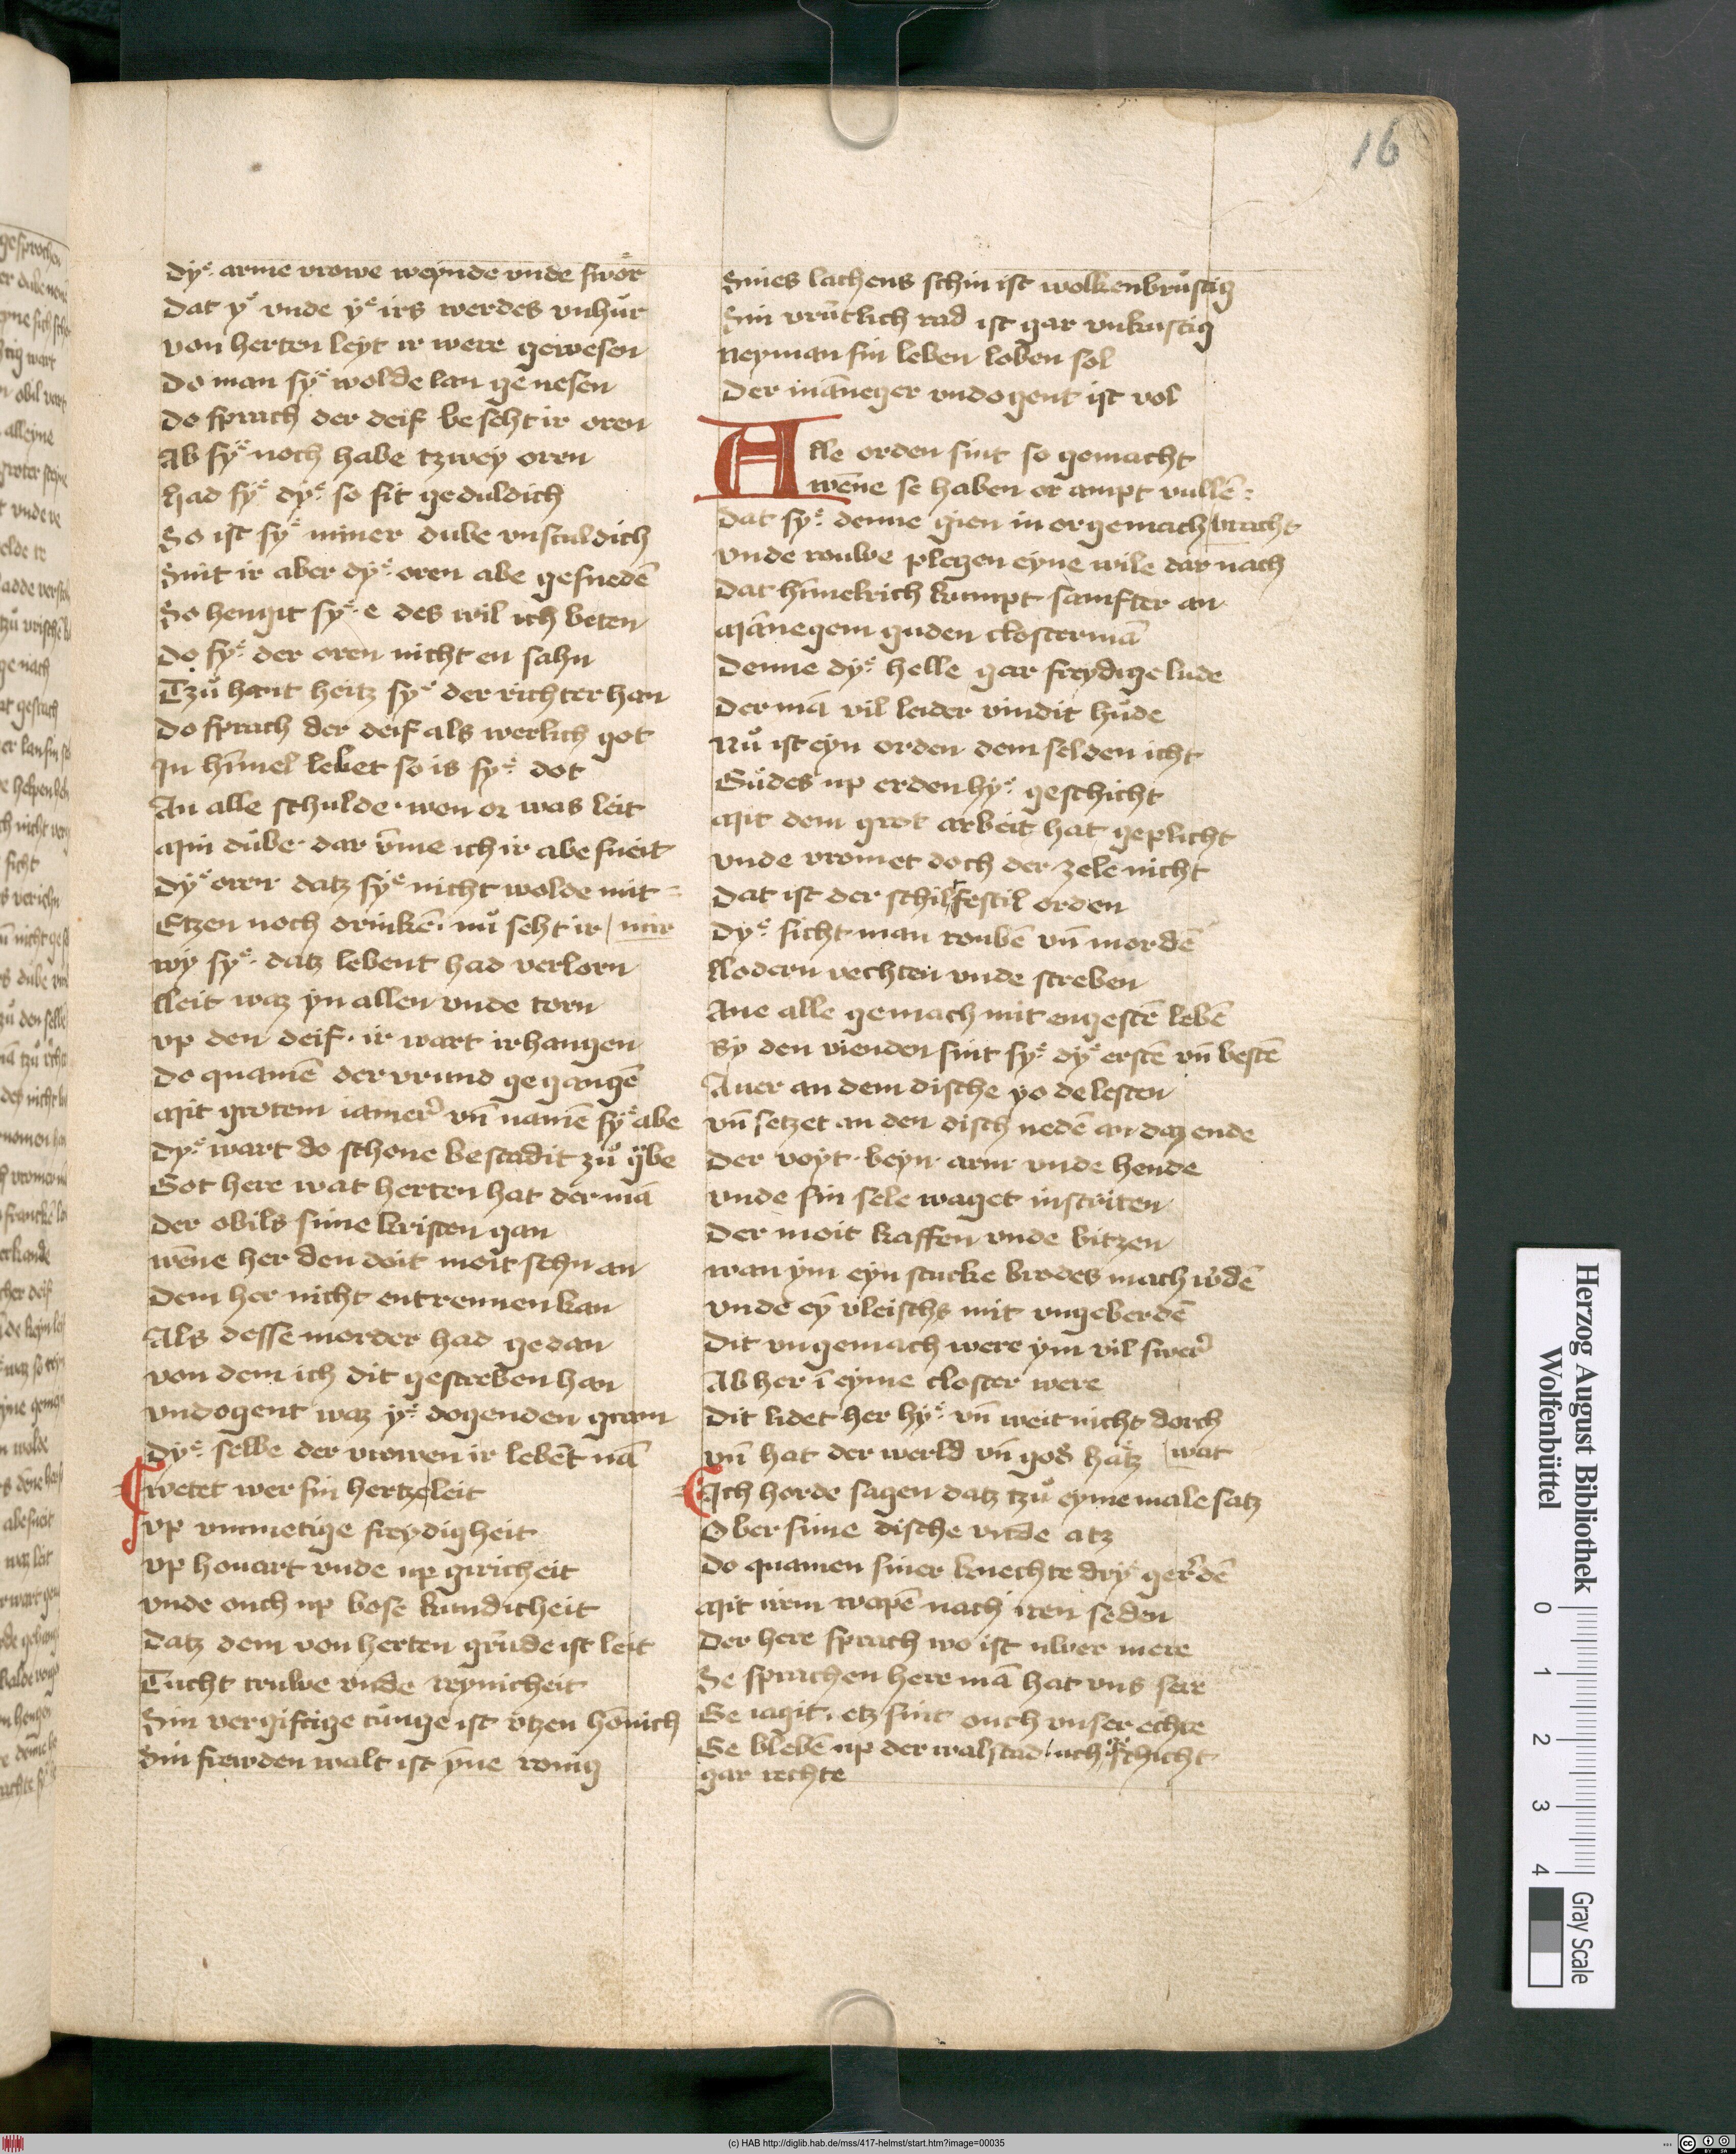 16
dyͤ arme vrowe weynde vnde swoͤr
dat yͤ vnde yͤ irs werdes vnhuͤr
von herten leyt ir were gewesen
do man syͤ wolde lan genesen
do sprach der deif beseht ir oren
Ab syͤ noch habe tzwey oren
had syͤ dyͤ so sit geduldich
So ist syͤ miner dube vnsculdich
Sint ir aber dyͤ oren abe gesnedē
So hengit syͤ e des wil ich beten
do syͤ der oren nicht en sahn
Tzuͦ hant heitz syͤ der richter han
do sprach der deif als werlich got
In hīmel lebet so is syͤ dot
An alle schulde· wen or was leit
Min duͤbe dar v̄me ich ir abe sneit
dyͤ oren datz syͤ nicht wolde mit =
Etzen noch drinkē· nuͦ seht ir / mir
wy syͤ datz lebent had verlorn
Leit waz yn allen vnde torn
vp den deif· ir wart irhangen
do quamē der vrund gegangē
Mit grotem iamer vn̄ namē syͤ abe
dyͤ wart do schone bestadit zuͦ gͣbe
Got here wat herten hat der mā
der obils sime kristen gan
wēne her den doit moit sehn an
dem her nicht entrennen kan
Als desse morder had gedan
von dem ich dit gescreben han
vndogent waz yͤ dogenden gram
dyͤ selbe der vrowen ir lebēt nā
wetet wer sin hertzeleit
vp vnmetige freydigheit
vp houart vnde up giricheit
vnde ouch up bose kundicheit
datz dem von herten grūde ist leit
Tucht truwe vnde reynicheit
Sin vergiftige tuͤnge ist vtzen hōnich
Sin frewden walt ist yne ronig
Smies lachens schin ist wolkenbruͤstig
Sin vruͤtlich rad ist gar vnkustig
Neyman sin leben loben sol
der māneger vndogent ist vol
Alle orden sint so gemacht
wēne se haben or ampt vullē =
dat syͤ denne gien in or gemach / bracht
vnde rouwe plegen eyne wile dar nach
dat hīmelrich kumpt samfter an
Mānegem guden clostermā
denne dyͤ helle gar freydige lude
der mā vil leider vindit huͤde
Nuͦ ist eyn orden dem selden icht
Guͦdes up erden hyͤ geschicht
Mit dem grot arbeit hat geplicht
vnde vromet doch der zele nicht
dat ist der schiltfestil orden
dyͤ sicht man roubē vn̄ mordē
Lodern vechten vnde streben
Ane alle gemach mit engestē lebē
By den vienden sint syͤ dyͤ erstē vn̄ bestē
Auer an dem dische yo de lesten
vn̄ setzet an den disch nedē an daz ende
der voyt· beyn arm vnde hende
vnde sin sele waget in striten
der moit kaffen vnde bitzen
wan ym eyn stucke brodes mach w̄dē
vnde eȳ vleischs mit vngeberdē
dit vngemach were ym vil swer
Ab her ī eyme closter were
dit lidet her hyͤ vn̄ weit nicht dorch
vn̄ hat der werld vn̄ gods hatz / wat
Ich horde sagen datz tzuͦ eyme male satz
Ober sime dische vnde atz
do quamen siner knechte dryͤ ger̄dē
Mit irem wapē nach iren seden
der here sprach wo ist uwer mere
Se sprachen here mā hat vns sere
Ge iagit· etz sint ouch vnser echte
Ge blebē up der walstad· uch schicht
gar rechte
Herzog August Bibliothek
Wolfenbüttel
0 1 2 3 4
Gray Scale
(c) HAB http://diglib.hab.de/mss/417-helmst/start.htm?image=00035